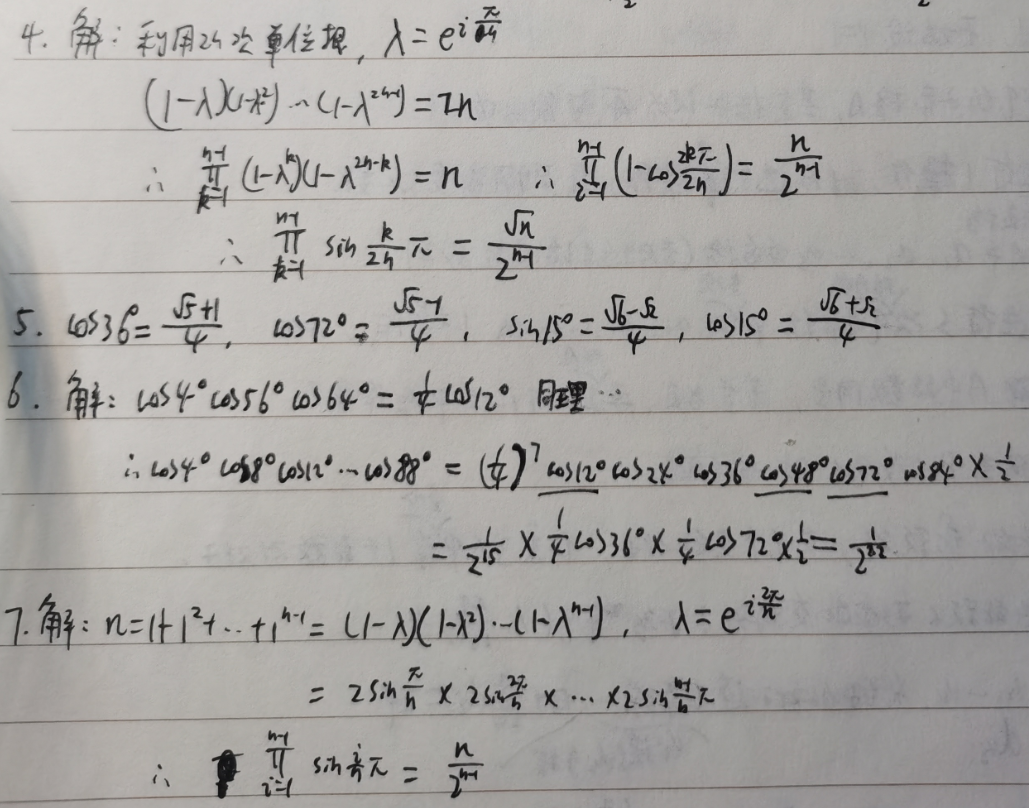 4. 解：利用2n次单位根，λ = e^{i π/n}
(1-λ)(1-λ²)…(1-λ^{2n-1}) = 2n
∴ ∏_{k=1}^{n-1} (1-λ^k)(1-λ^{2n-k}) = n ∴ ∏_{i=1}^{n-1} (1-cos 2kπ/2n) = n/2^{n-1}
∴ ∏_{k=1}^{n-1} sin k/2n π = √n/2^{n-1}
5. cos36° = (√5+1)/4, cos72° = (√5-1)/4, sin15° = (√6-√2)/4, cos15° = (√6+√2)/4
6. 解：cos4° cos56° cos64° = 1/4 cos12° 同理…
∴ cos4° cos8° cos12° … cos88° = (1/4)^7 cos12° cos24° cos36° cos48° cos72° cos84° × 1/2
= 1/2^{15} × 1/4 cos36° × 1/4 cos72° × 1/2 = 1/2^{22}
7. 解：n = 1+1²+…+1^{n-1} = (1-λ)(1-λ²)…(1-λ^{n-1}), λ = e^{i 2π/n}
= 2sin π/n × 2sin 2π/n × … × 2sin (n-1)/n π
∴ ∏_{i=1}^{n-1} sin i/n π = n/2^{n-1}